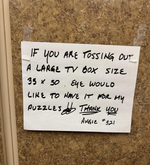 IF YOU ARE TOSSING OUT
A LARGE TV BOX SIZE
35 X 50 EYE WOULD
LIKE TO HAVE IT FOR MY
PUZZLES THANK YOU
AUGIE #321